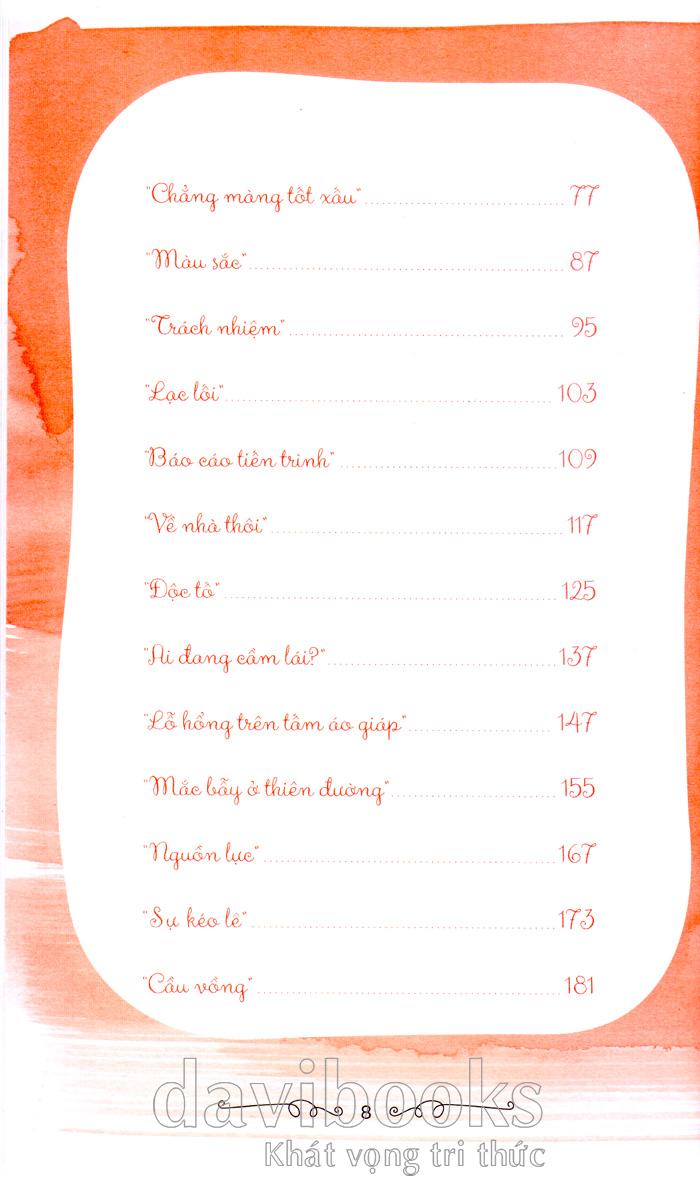 "Chẳng màng tốt xấu" 77
"Màu sắc" 87
"Trách nhiệm" 95
"Lạc lối" 103
"Báo cáo tiến trình" 109
"Về nhà thôi" 117
"Độc tố" 125
"Ai đang cầm lái?" 137
"Lỗ hổng trên tấm áo giáp" 147
"Mắc bẫy ở thiên đường" 155
"Nguồn lực" 167
"Sự kéo lê" 173
"Cầu vồng" 181
davibooks
8
Khát vọng tri thức